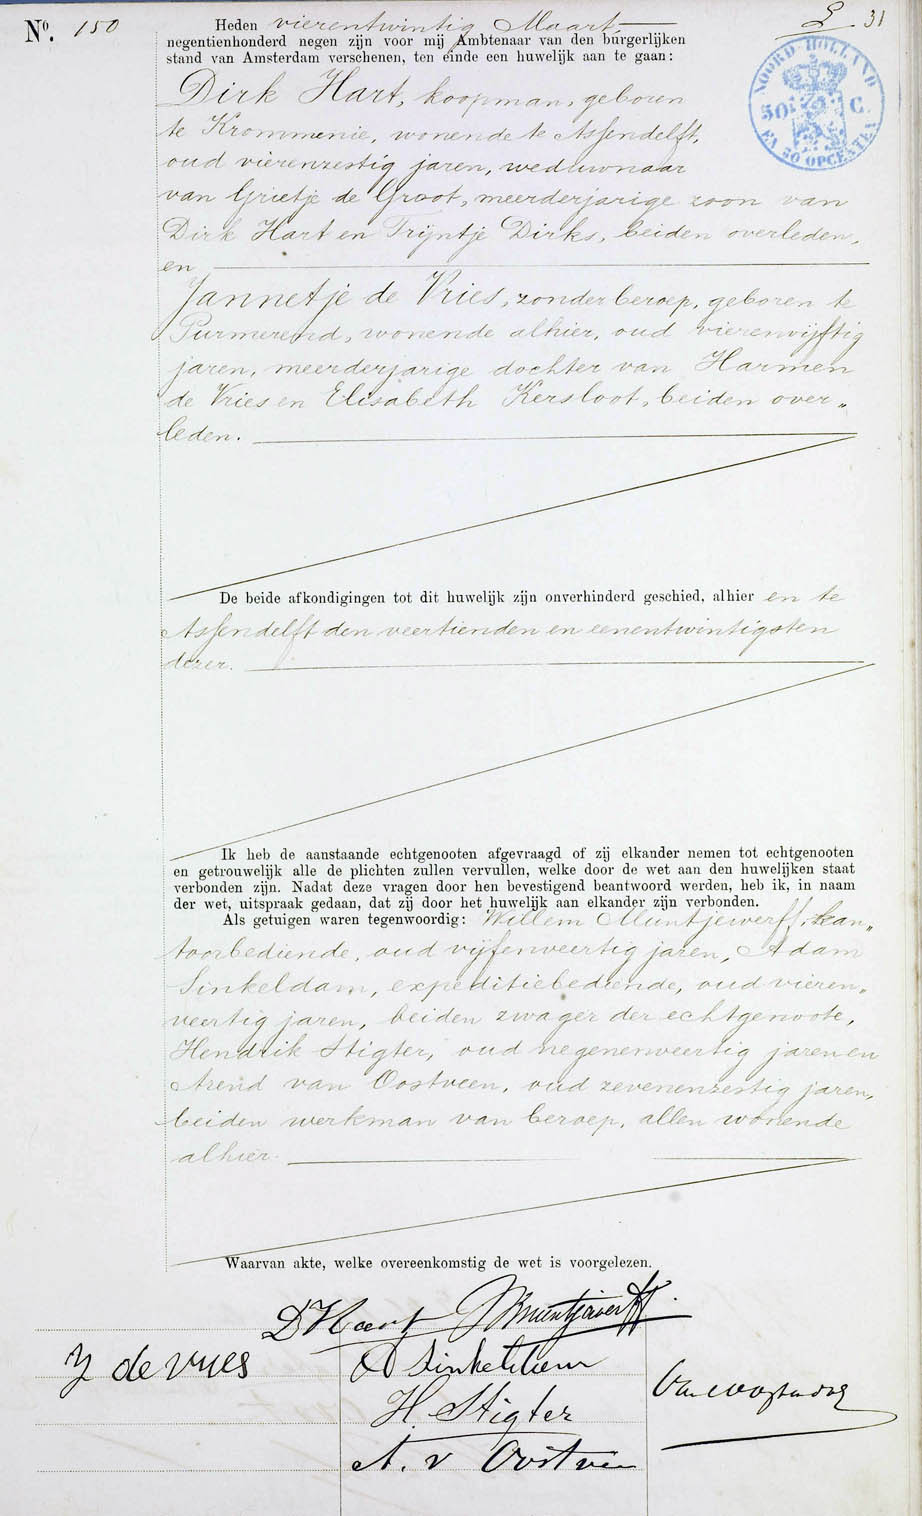 Nº. 150
Heden vierentwintig Maart
31
negentienhonderd negen zijn voor mij Ambtenaar van den burgerlijken
stand van Amsterdam verschenen, ten einde een huwelijk aan te gaan:
NOORD-HOLLAND
50 C.
EN 50 OPCENTEN
Dirk Hart, koopman, geboren
te Krommenie, wonende te Assendelft,
oud vierenzestig jaren, weduwnaar
van Grietje de Groot, meerderjarige zoon van
Dirk Hart en Trijntje Dirks, beiden overleden,
en
Jannetje de Vries, zonder beroep, geboren te
Purmerend, wonende alhier, oud vierenvijftig
jaren, meerderjarige dochter van Harmen
de Vries en Elisabeth Kersloot, beiden over„
leden.
De beide afkondigingen tot dit huwelijk zijn onverhinderd geschied, alhier en te
Assendelft den veertienden en eenentwintigsten
dezer.
Ik heb de aanstaande echtgenooten afgevraagd of zij elkander nemen tot echtgenooten
en getrouwelijk alle de plichten zullen vervullen, welke door de wet aan den huwelijken staat
verbonden zijn. Nadat deze vragen door hen bevestigend beantwoord werden, heb ik, in naam
der wet, uitspraak gedaan, dat zij door het huwelijk aan elkander zijn verbonden.
Als getuigen waren tegenwoordig: Willem Muntjewerff, kan„
toorbediende, oud vijfenveertig jaren, Adam
Sinkeldam, expeditiebediende, oud vieren„
veertig jaren, beiden zwager der echtgenoote,
Hendrik Stigter, oud negenenveertig jaren en
Arend van Oostveen, oud zevenenzestig jaren,
beiden werkman van beroep, allen wonende
alhier.
Waarvan akte, welke overeenkomstig de wet is voorgelezen.
D Hart W Muntjewerff.
J de Vries
A Sinkeldam
H. Stigter
A. v Oostveen